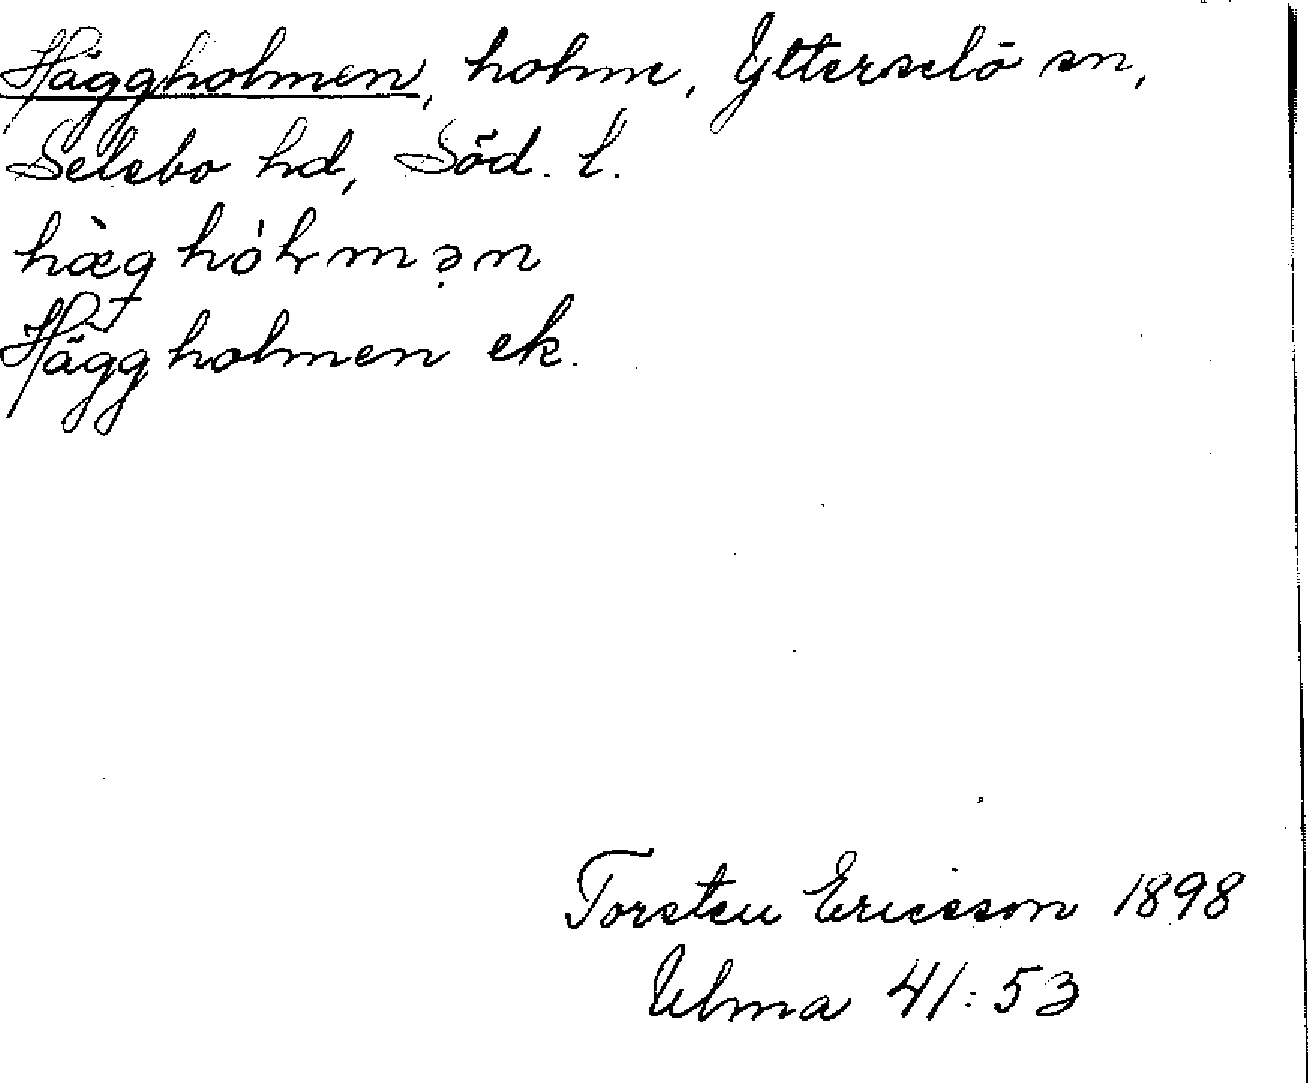 Häggholmen, holme, Ytterselö sn,
Selebo hd, Söd. l.
hæ̀g hóɫmən
Häggholmen ek.
Torsten Ericsson 1898
Ulma 41:53